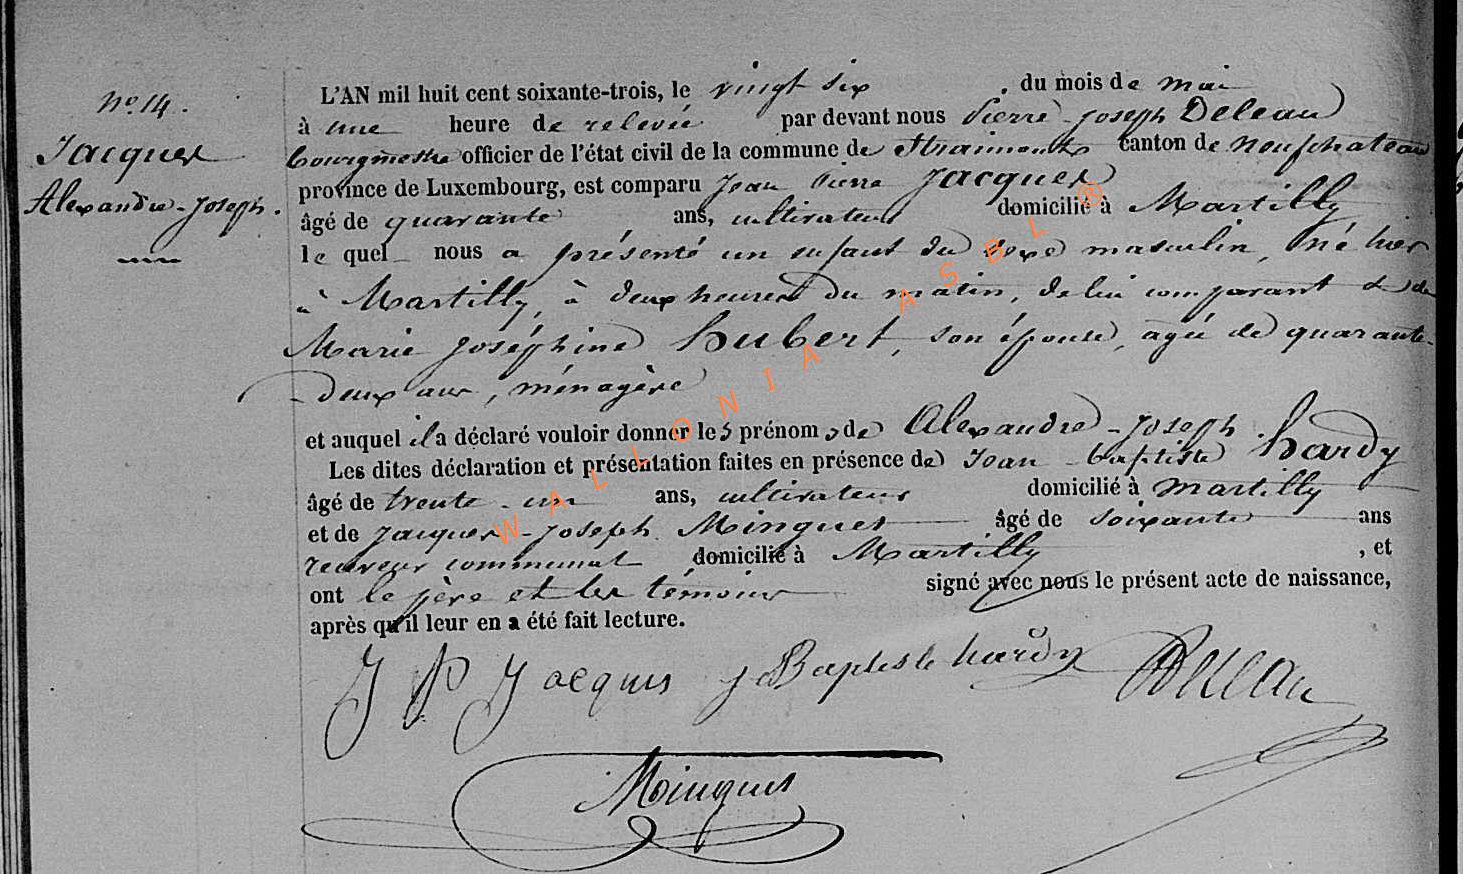 N° 14.
Jacques
Alexandre-Joseph.
L'AN mil huit cent soixante-trois, le vingt six du mois de mai
à une heure de relevée par devant nous Pierre-Joseph Deleau
bourgmestre officier de l'état civil de la commune de Straimont canton de neufchateau
province de Luxembourg, est comparu Jean Pierre Jacques
âgé de quarante ans, cultivateur domicilié à Martilly
le quel nous a présenté un enfant du sexe masculin, né hier
à Martilly, à deux heures du matin, de lui comparant et de
Marie Joséphine hubert, son épouse, agée de quarante-
deux ans, ménagère
et auquel il a déclaré vouloir donner les prénoms de Alexandre-Joseph.
Les dites déclaration et présentation faites en présence de Jean-baptiste hardy
âgé de trente-un ans, cultivateur domicilié à Martilly
et de Jacques-Joseph Minguet âgé de soixante ans
receveur communal domicilié à Martilly, et
ont le père et les témoins signé avec nous le présent acte de naissance,
après qu'il leur en a été fait lecture.
J P Jacques J Baptiste hardy Deleau
Minguet
WALLONIA ASBL ®